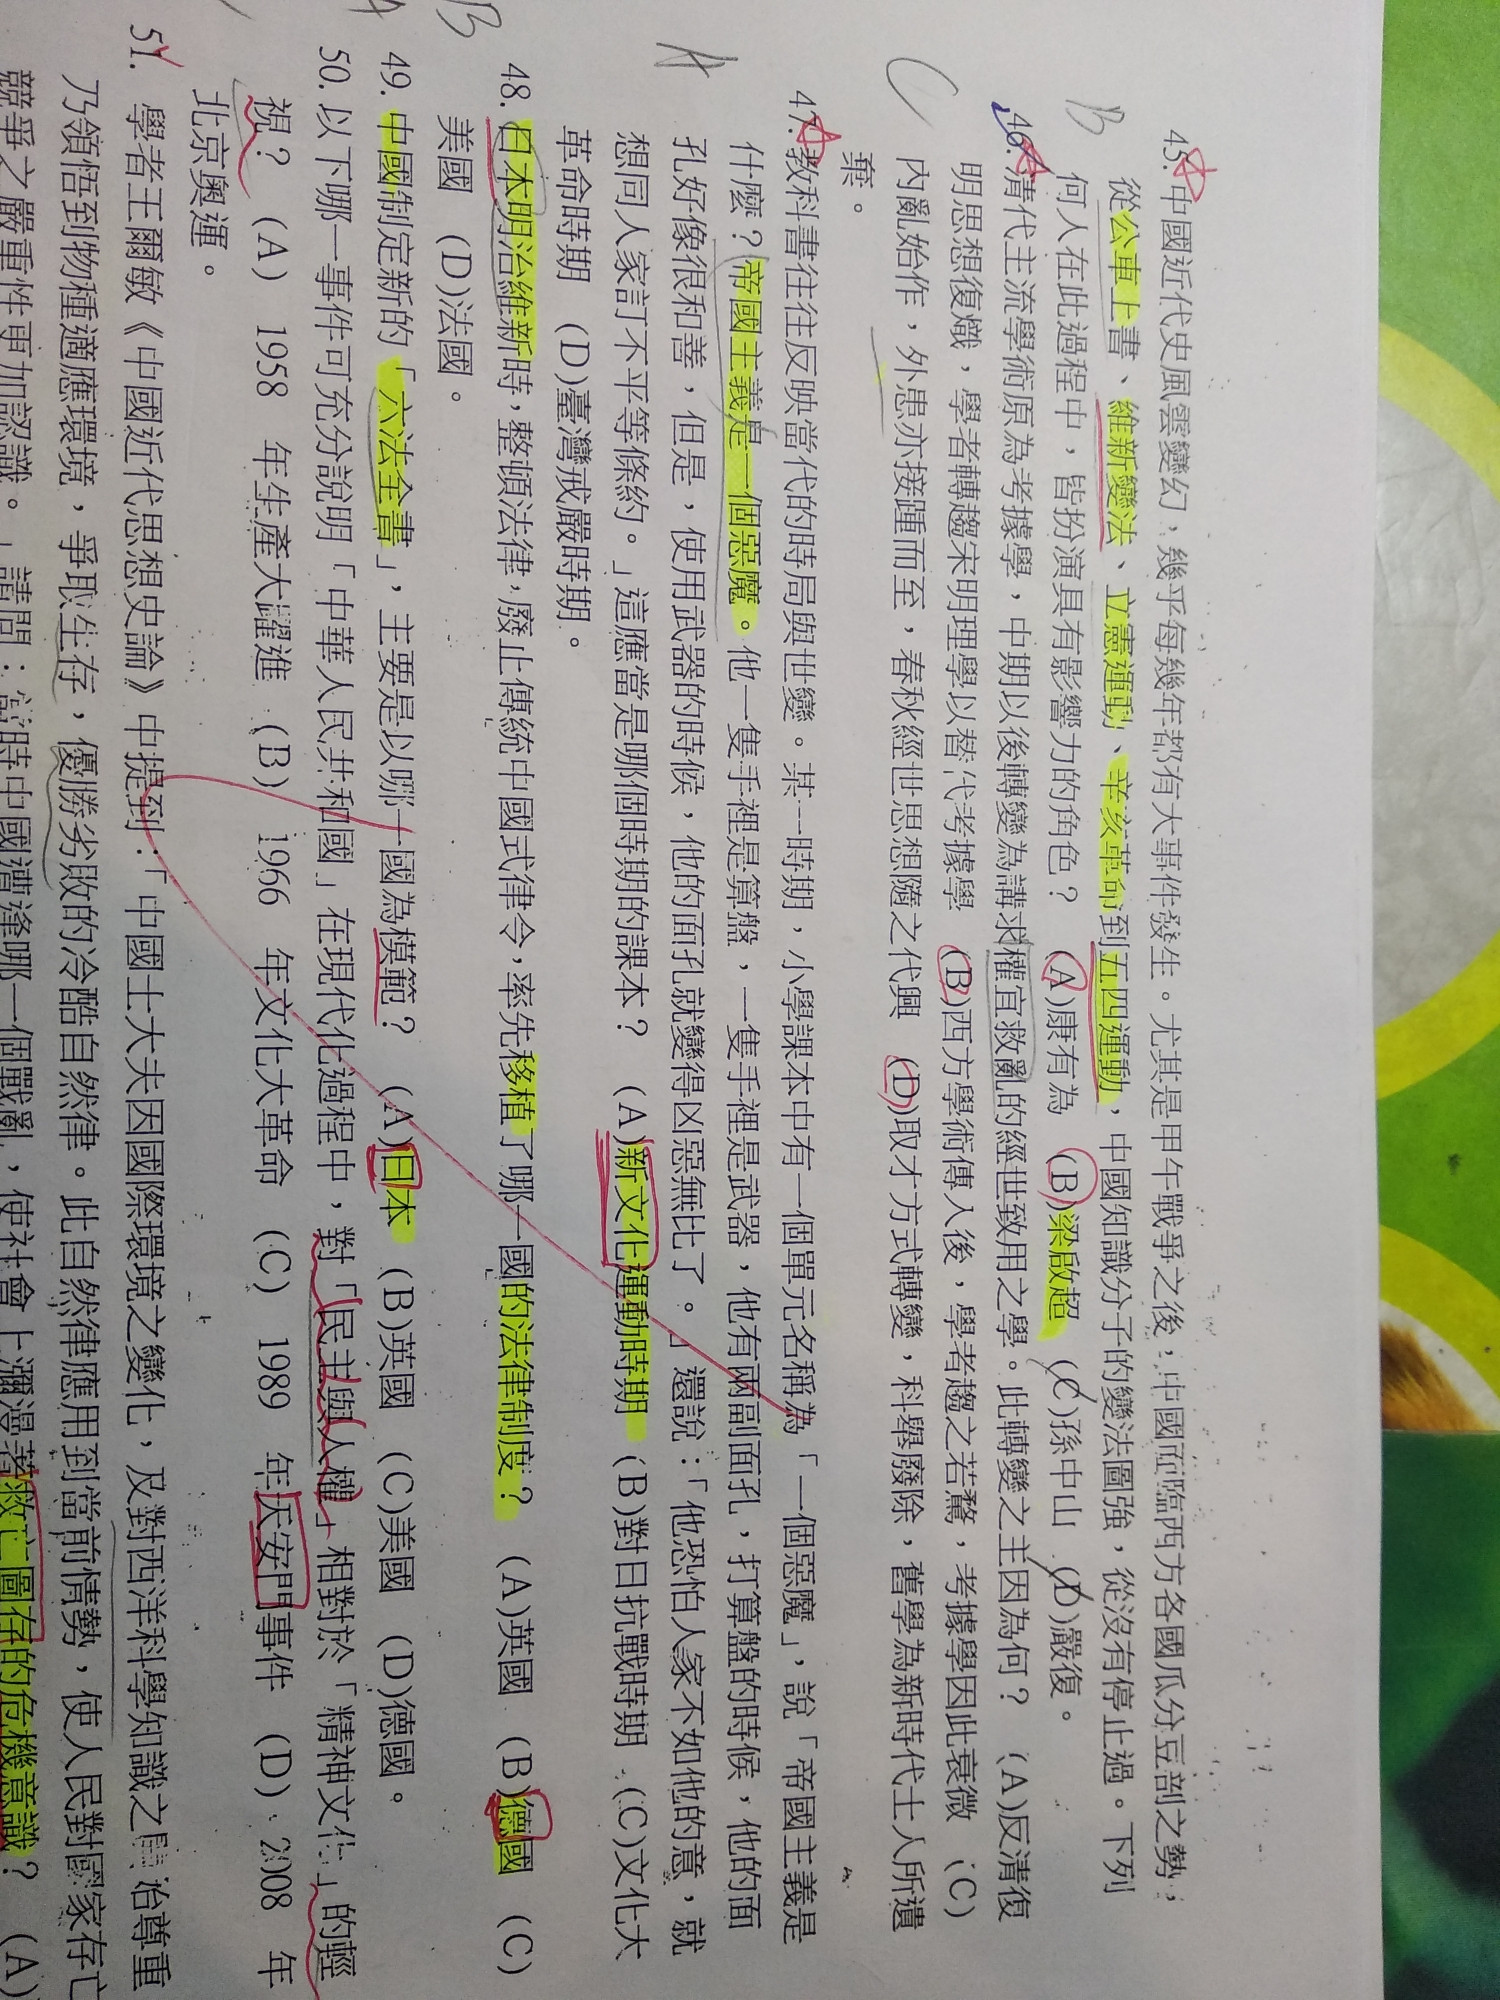 B
45.中國近代史風雲變幻，幾乎每幾年都有大事件發生。尤其是甲午戰爭之後，中國面臨西方各國瓜分豆剖之勢，
從公車上書、維新變法、立憲運動、辛亥革命到五四運動，中國知識分子的變法圖強，從沒有停止過。下列
何人在此過程中，皆扮演具有影響力的角色？ (A)康有為 (B)梁啟超 (C)孫中山 (D)嚴復。
C
46.清代主流學術原為考據學，中期以後轉變為講求權宜救亂的經世致用之學。此轉變之主因為何？ (A)反清復
明思想復熾，學者轉趨宋明理學以替代考據學 (B)西方學術傳入後，學者趨之若鶩，考據學因此衰微 (C)
內亂始作，外患亦接踵而至，春秋經世思想隨之代興 (D)取才方式轉變，科舉廢除，舊學為新時代士人所遺
棄。
A
47.教科書往往反映當代的時局與世變。某一時期，小學課本中有一個單元名稱為「一個惡魔」，說「帝國主義是
什麼？帝國主義是一個惡魔。他一隻手裡是算盤，一隻手裡是武器，他有兩副面孔，打算盤的時候，他的面
孔好像很和善，但是，使用武器的時候，他的面孔就變得凶惡無比了。」還說：「他恐怕人家不如他的意，就
想同人家訂不平等條約。」這應當是哪個時期的課本？ (A)新文化運動時期 (B)對日抗戰時期 (C)文化大
革命時期 (D)臺灣戒嚴時期。
B
48.日本明治維新時，整頓法律，廢止傳統中國式律令，率先移植了哪一國的法律制度？ (A)英國 (B)德國 (C)
美國 (D)法國。
A
49.中國制定新的「六法全書」，主要是以哪一國為模範？ (A)日本 (B)英國 (C)美國 (D)德國。
50.以下哪一事件可充分說明「中華人民共和國」在現代化過程中，對「民主與人權」相對於「精神文化」的輕
視？ (A) 1958 年生產大躍進 (B) 1966 年文化大革命 (C) 1989 年天安門事件 (D) 2008 年
北京奧運。
51.學者王爾敏《中國近代思想史論》中提到：「中國士大夫因國際環境之變化，及對西洋科學知識之講治尊重
乃領悟到物種適應環境，爭取生存，優勝劣敗的冷酷自然律。此自然律應用到當前情勢，使人民對國家存亡
競爭之嚴重性更加認識。」請問：當時中國遭逢哪一個戰亂，使社會上瀰漫著救亡圖存的危機意識？ (A)